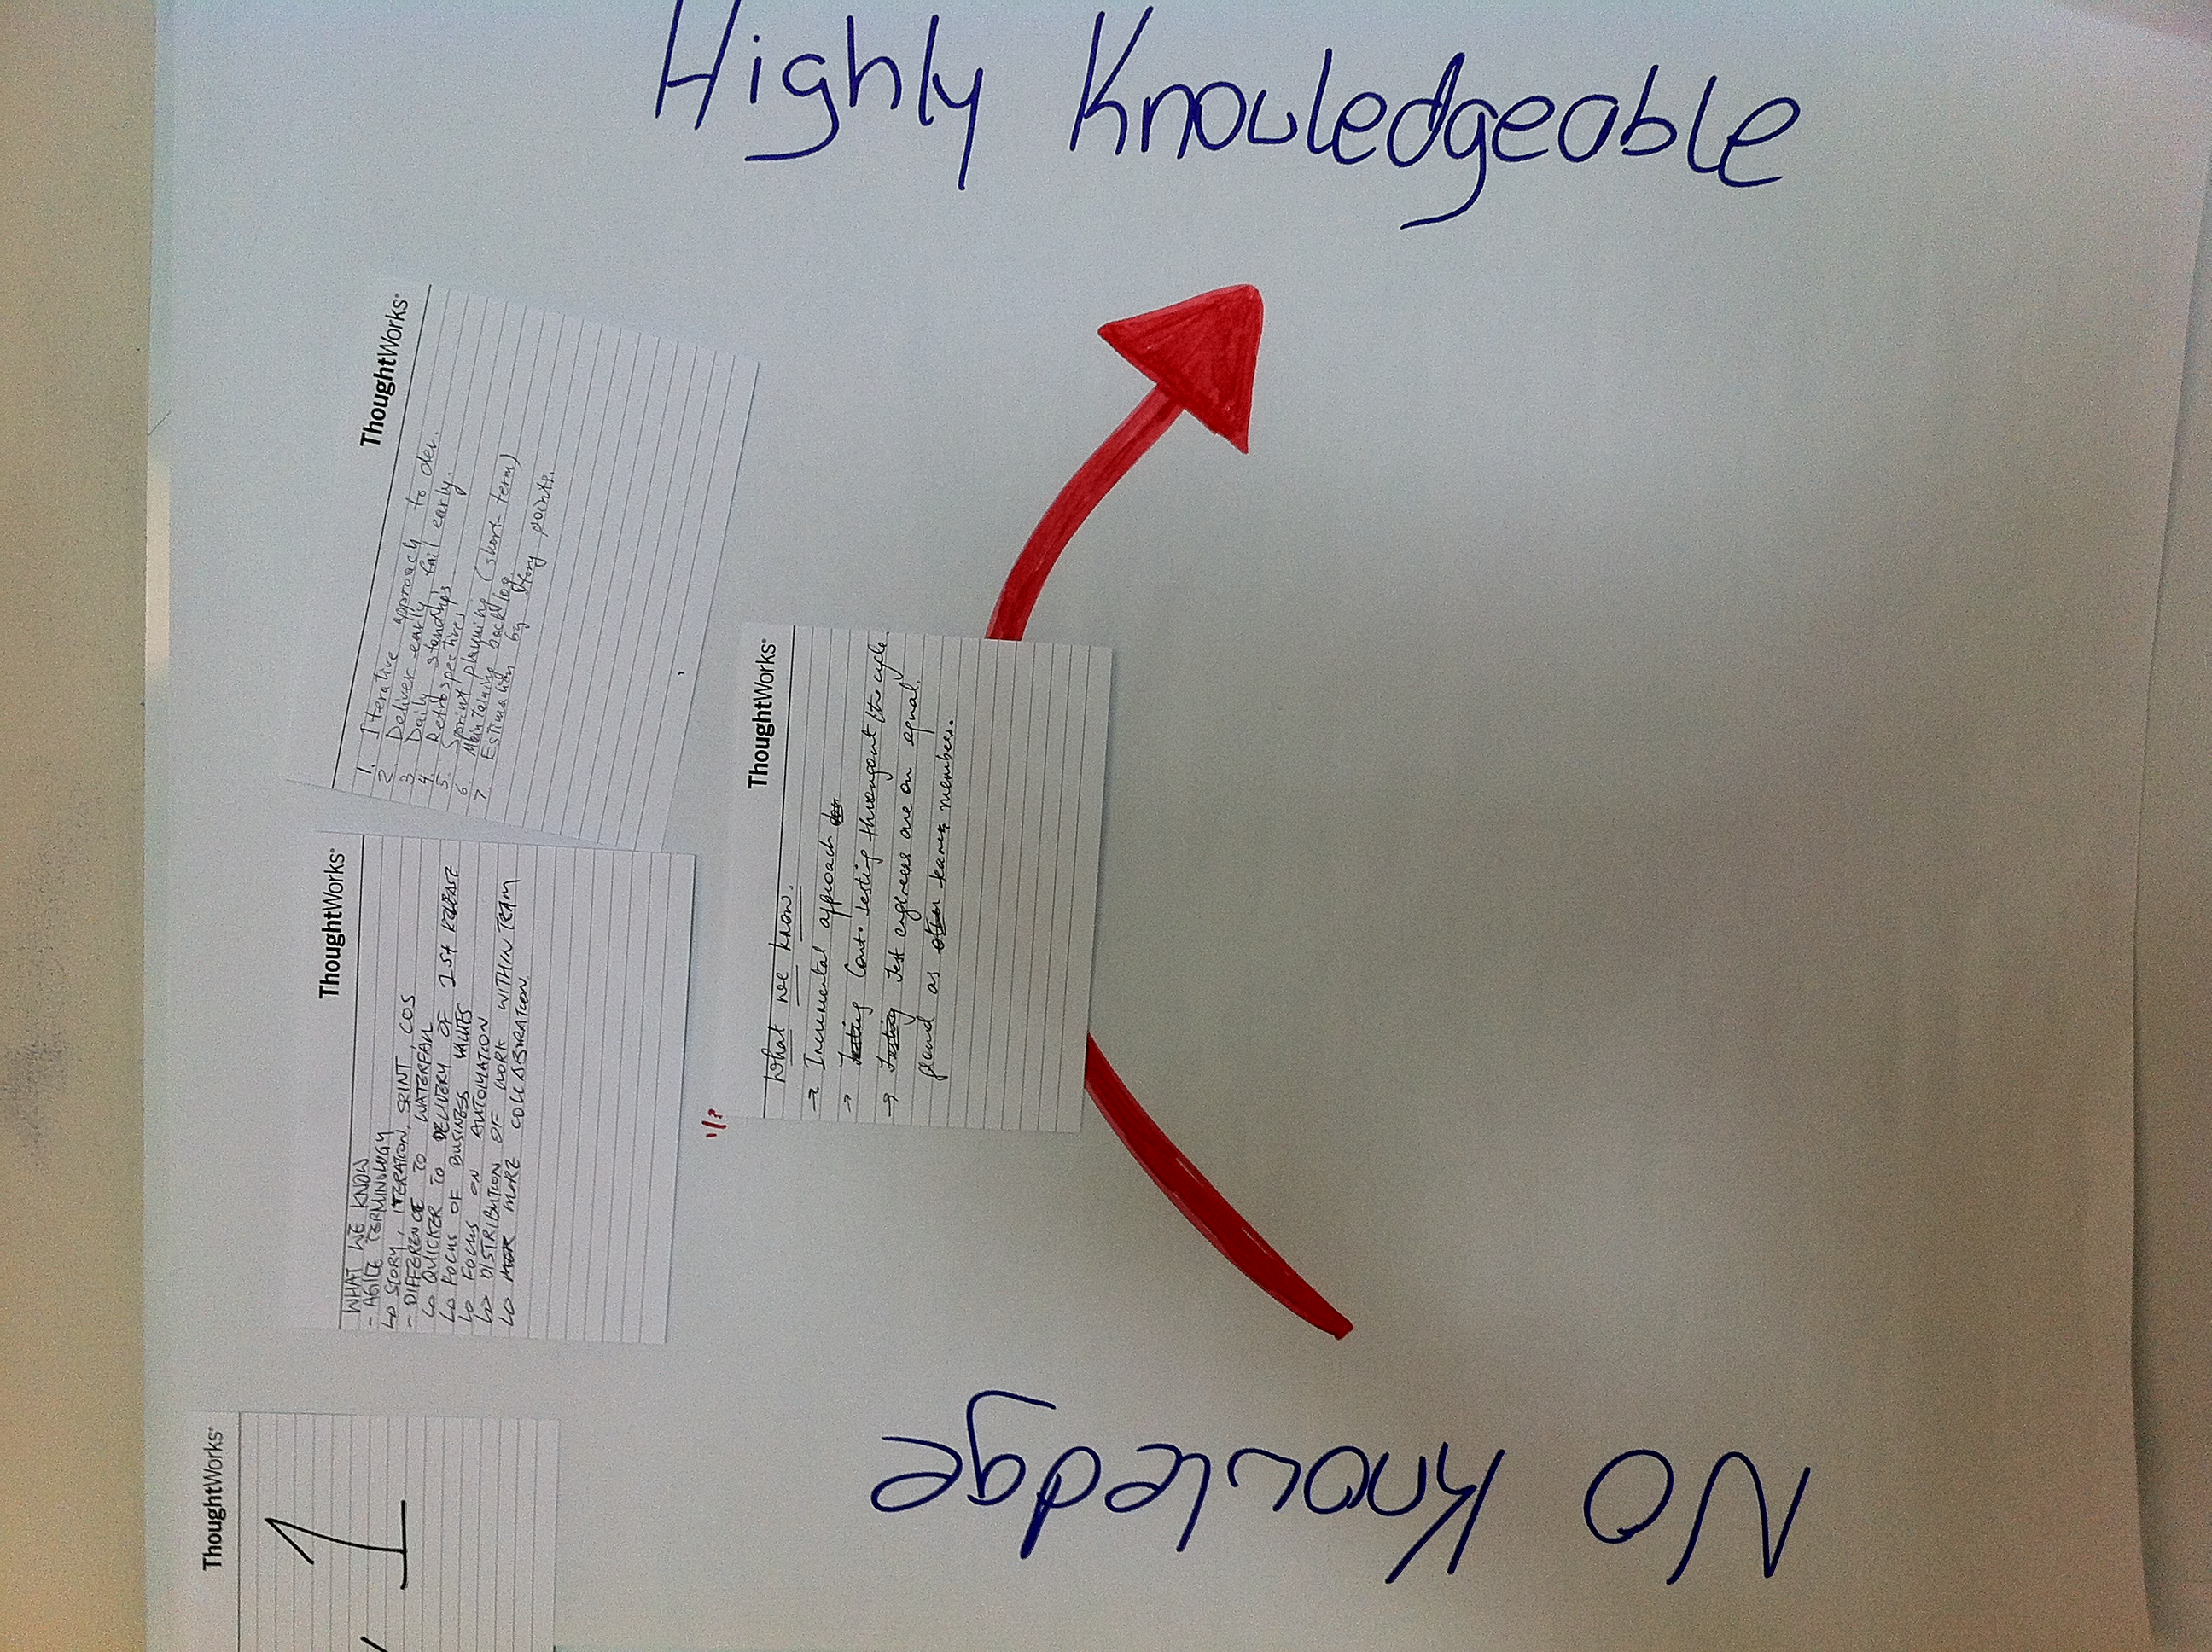 ThoughtWorks®
1
ThoughtWorks®
WHAT WE KNOW
- AGILE TERMINOLOGY
↳ STORY, ITERATION, SRINT, COS
- DIFFERENCE TO WATERFALL
↳ QUICKER TO DELIVERY OF 1st RELEASE
↳ FOCUS OF BUSINESS VALUES
↳ FOCUS ON AUTOMATION
↳ DISTRIBUTION OF WORK WITHIN TEAM
↳ MORE COLLABORATION.
ThoughtWorks®
1. Iterative approach to dev.
2. Deliver early, fail early.
3. Daily standups
4. Retrospectives
5. Sprint planning (short-term)
6. Maintaining backlog.
7. Estimation by story points.
ThoughtWorks®
What we know.
→ Incremental approach
→ Testing Cont. testing througout the cycle.
→ Testing Test engineers are on equal.
ground as other team members.
No Knowledge
Highly Knowledgeable